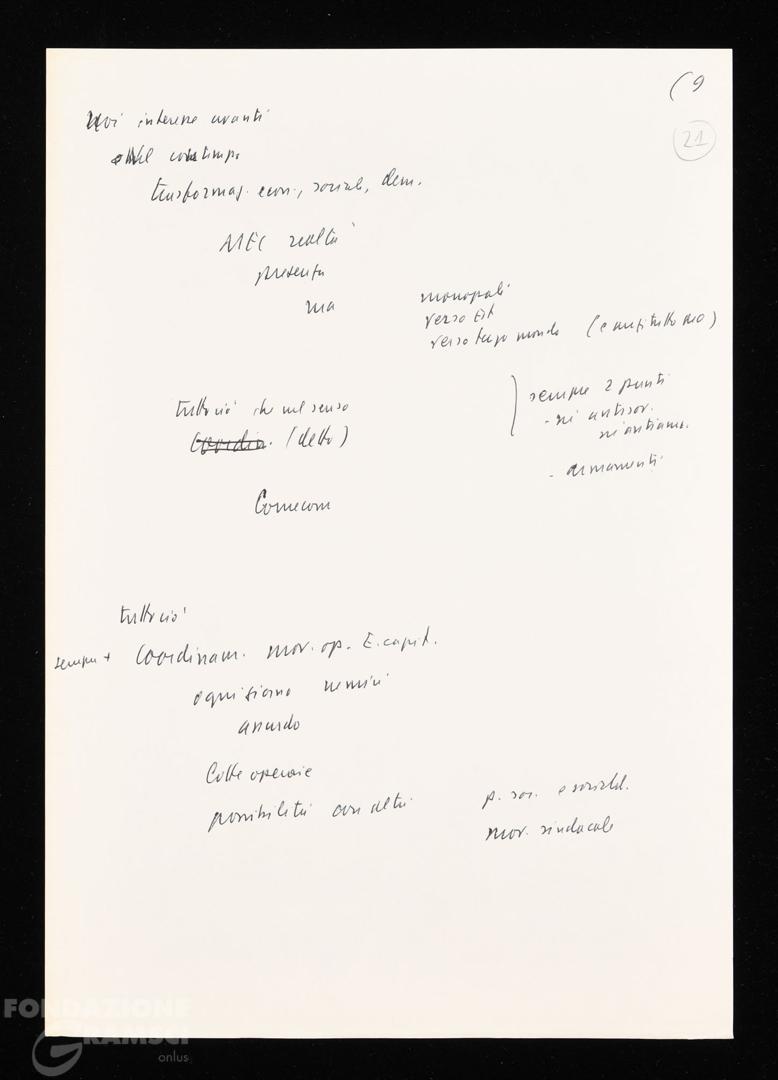 (9
21
Noi interesse avanti
nel contempo
trasformaz. econ., sociale, dem.
MEC realtà
presenta
ma
monopoli
verso Est
verso terzo mondo (e anzitutto
tutto ciò che nel senso
Coordin. (detto)
sempre 2 punti
- né antisov.
né antiam.
- armamenti
Comecon
tutto ciò
sempre + Coordinam. mov. op. E. capit.
ogni siano
accordo
lotte operaie
possibilità con altri
p. soc. e sociald.
mov. sindacale
FONDAZIONE
GRAMSCI
onlus